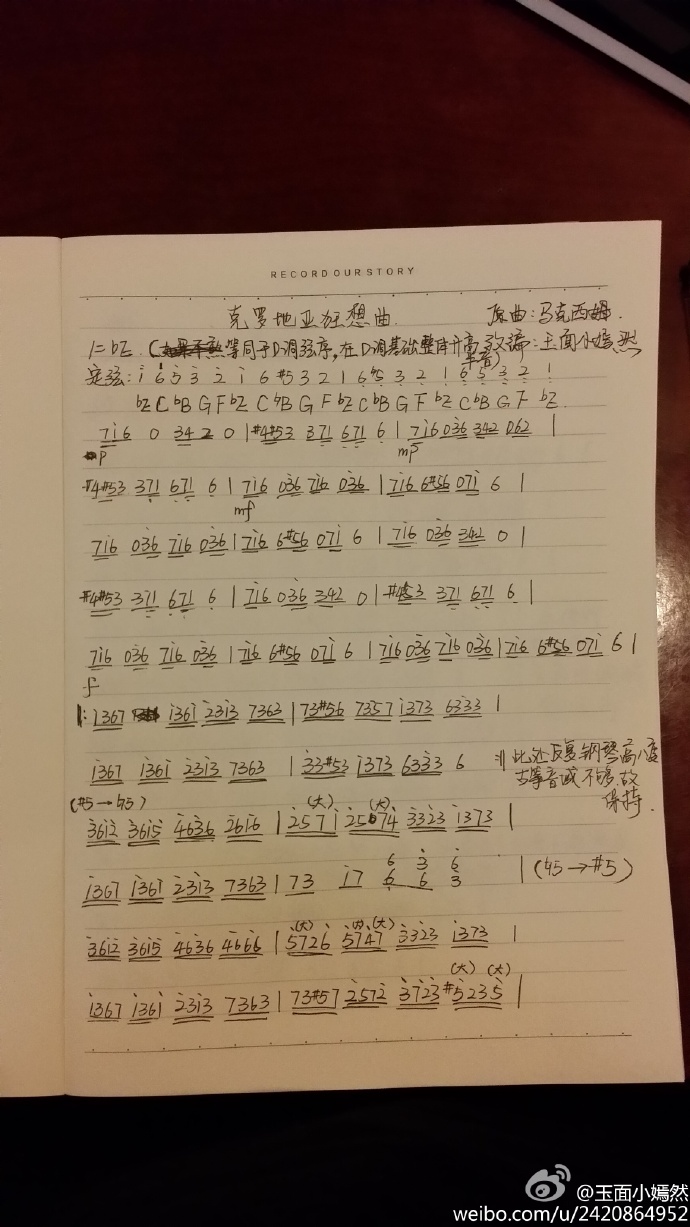 RECORD OUR STORY
克罗地亚狂想曲. 原曲:马克西姆.
1=bE (等同于D调弦序,在D调基础整体升高半音) 改谱:玉面小嫣然
定弦: i 6 5 3 2 1 6 #5 3 2 1 6 #5 3 2 1 6 5 3 2 1
bE C bB G F bE C bB G F bE C bB G F bE C bB G F bE
716 0 342 0 | #4#53 371 671 6 | 716 036 342 062 |
p mp
#4#53 371 671 6 | 716 036 716 036 | 716 6#56 071 6 |
mf
716 036 716 036 | 716 6#56 071 6 | 716 036 342 0 |
#4#53 371 671 6 | 716 036 342 0 | #4#53 371 671 6 |
716 036 716 036 | 716 6#56 071 6 | 716 036 716 036 | 716 6#56 071 6 |
f
|: 1367 1361 2313 7363 | 73#56 7357 1373 6333 |
1367 1361 2313 7363 | 33#53 1373 6333 6 :|| 此处反复钢琴高八度
古筝音域不够,故
保持.
(#5→♮5)
3612 3615 4636 2616 | 2571 2574 3323 1373 |
(大) (大)
1367 1361 2313 7363 | 73 17 6 6 3 6 6 3 | (♮5→#5)
3612 3615 4636 4666 | 5726 5747 3323 1373 |
(大) (大) (大)
1367 1361 2313 7363 | 73#57 2572 3723 #5235 |
(大) (大)
@玉面小嫣然
weibo.com/u/2420864952